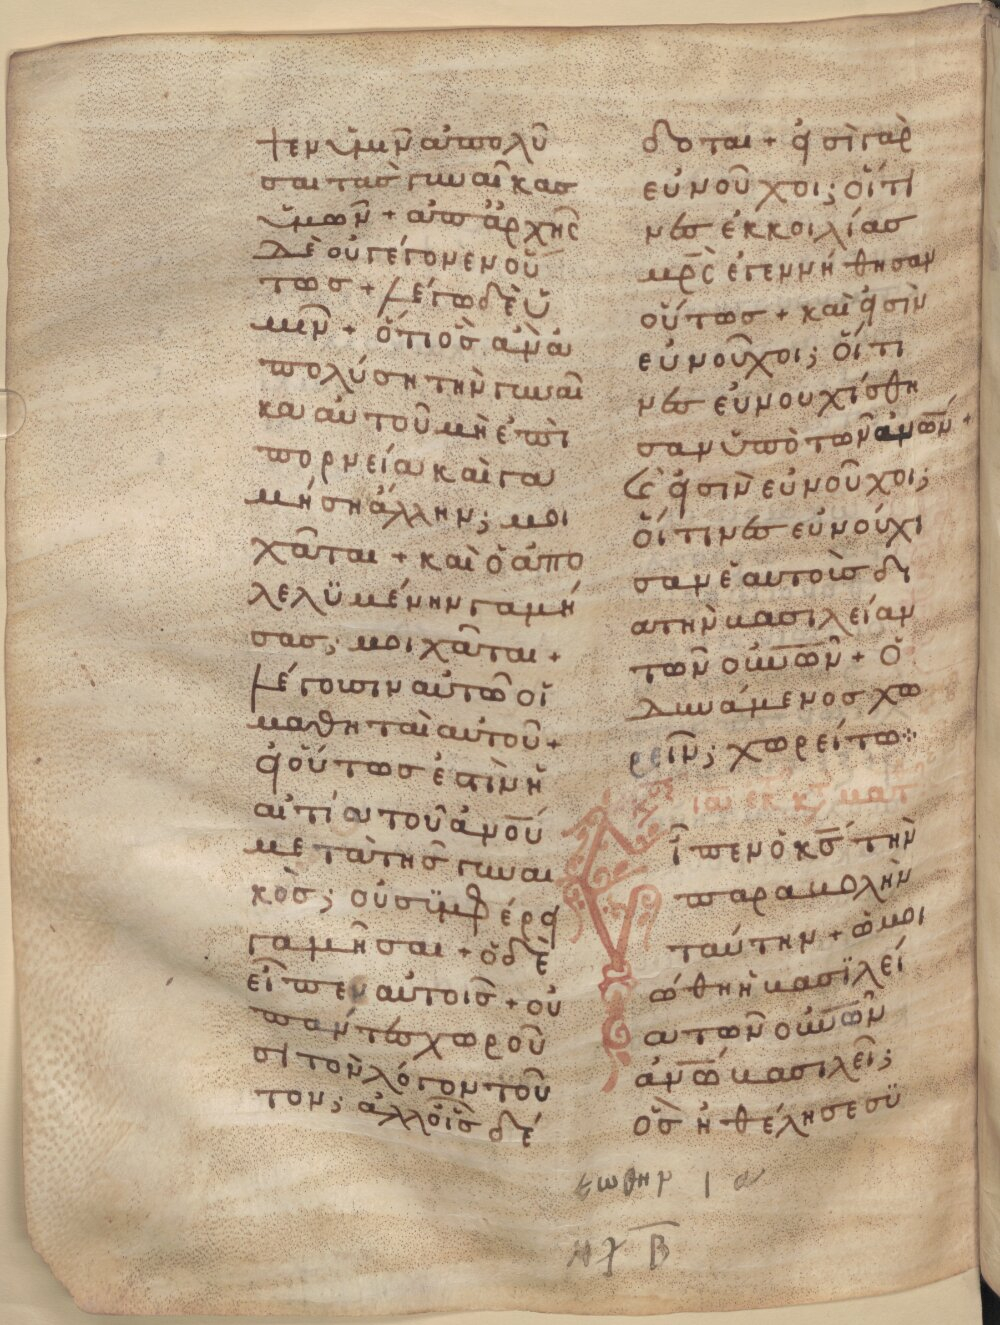 ψεν ὑμῖν ἀπολῦ
σαι τὰσ γυναῖκασ
ὑμῶν + ἀπ ἀρχῆς
δὲ οὐ γέγονεν οὕ
τωσ + λέγω δὲ ὑ
μῖν + ὅτι ὃσ ἀν ἀ
πολύση τὴν γυναῖ
κα αὐτοῦ μὴ ἐπὶ
πορνεία καὶ γα
μήση ἄλλην; μοι
χᾶται + καὶ ὁ ἀπο
λελϋμένην γαμή
σασ; μοιχᾶται +
λέγουσιν αὐτῶ οἱ
μαθηταὶ αὐτοῦ +
εἰ οὕτωσ ἐστὶν ἡ
αἰτία τοῦ ἀνο̅υ
μετὰ τῆσ γυναι
κὸσ; οὐ σϋμφέρει
γαμῆσαι + ὁ δὲ
εἶπεν αὐτοῖσ + οὐ
πάντεσ χωροῦ
σι τὸν λόγον τοῦ
τον; ἀλλ οἷσ δέ
δοται + εἰσὶ γὰρ
εὐνοῦχοι; οἵτι
νεσ ἐκ κοιλίασ
μρ̅ς ἐγεννήθησαν
οὕτωσ + καὶ εἰσὶν
εὐνοῦχοι; οἵτι
νεσ εὐνουχίσθη
σαν ὑπὸ τῶν ἀν̅ω̅ν +
καὶ εἰσὶν εὐνοῦχοι;
οἵτινεσ εὐνούχι
σαν ἑαυτοὺσ δι
α τὴν βασιλείαν
τῶν ου̅νω̅ν + ὁ
δυνάμενοσ χω
ρεῖν; χωρείτω:
εκ κτ ματ
ἶπεν ὁ κ̅σ τὴν
παραβολὴν
ταύτην + ὡμοι
ώθη ἡ βασϊλεί
α τῶν ου̅νω̅ν
ἀν̅ω βασιλεῖ;
ὃσ ἠθέλησε σϋ